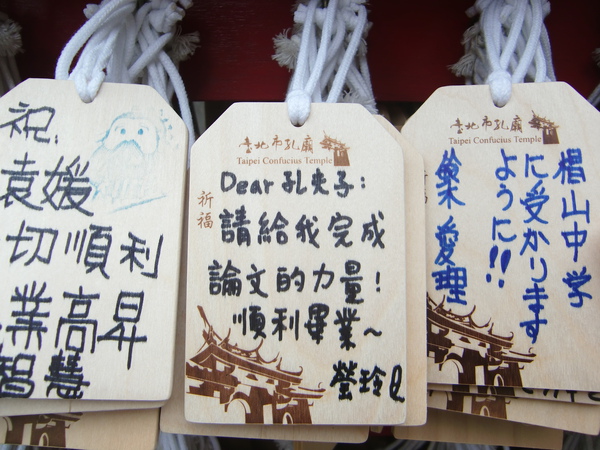 祝,
袁媛
切順利
業高昇
智慧
臺北市孔廟
Taipei Confucius Temple
祈福
Dear 孔夫子:
請給我完成
論文的力量!
順利畢業~
瑩玲
臺北市孔廟
Taipei Confucius Temple
椙山中学
に受かります
ように!!
愛理